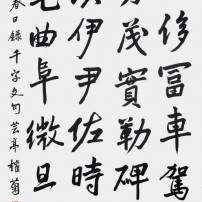 侈冨車駕
茂實勒碑
伊尹佐時
宅曲阜微旦
春日錄千字文句芸亭權菊